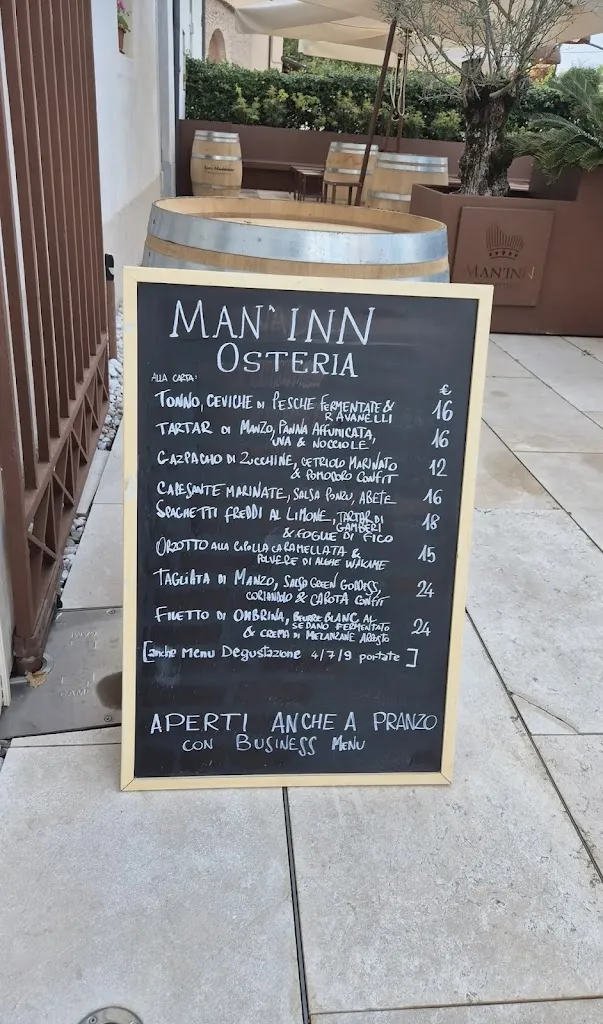 MAN'INN
OSTERIA
ALLA CARTA:
€
TONNO, CEVICHE DI PESCHE FERMENTATE & 16
RAVANELLI
TARTAR DI MANZO, PANNA AFFUMICATA, 16
UVA & NOCCIOLE
GAZPACHO DI ZUCCHINE, CETRIOLO MARINATO 12
& POMODORO CONFIT
CAPESANTE MARINATE, SALSA PONZU, ABETE 16
SPAGHETTI FREDDI AL LIMONE, TARTAR DI 18
GAMBERI
& FOGLIE DI FICO
ORZOTTO ALLA CIPOLLA CARAMELLATA & 15
POLVERE DI ALGHE WAKAME
TAGLIATA DI MANZO, SALSA GREEN GODDESS, 24
CORIANDOLO & CAROTA CONFIT
FILETTO DI OMBRINA, BEURRE BLANC AL 24
SEDANO FERMENTATO
& CREMA DI MELANZANE ARROSTO
[anche Menu Degustazione 4/7/9 portate]
APERTI ANCHE A PRANZO
CON BUSINESS MENU
MAN'INN